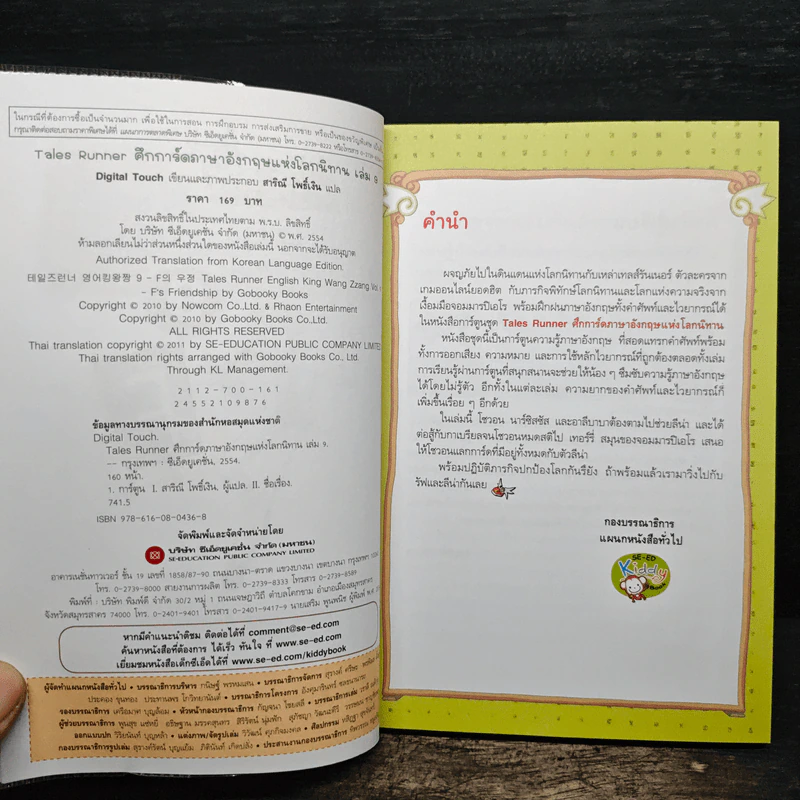 ในกรณีที่ต้องการซื้อเป็นจำนวนมาก เพื่อใช้ในการสอน การฝึกอบรม การส่งเสริมการขาย หรือเป็นของขวัญพิเศษ
กรุณาติดต่อสอบถามราคาพิเศษได้ที่ แผนกการตลาดพิเศษ บริษัท ซีเอ็ดยูเคชั่น จำกัด (มหาชน) โทร. 0-2739-8222 หรือโทรสาร
Tales Runner ศึกการ์ดภาษาอังกฤษแห่งโลกนิทาน เล่ม 9
Digital Touch เขียนและภาพประกอบ สาริณี โพธิ์เงิน แปล
ราคา 169 บาท
สงวนลิขสิทธิ์ในประเทศไทยตาม พ.ร.บ. ลิขสิทธิ์
โดย บริษัท ซีเอ็ดยูเคชั่น จำกัด (มหาชน) © พ.ศ. 2554
ห้ามลอกเลียนไม่ว่าส่วนหนึ่งส่วนใดของหนังสือเล่มนี้ นอกจากจะได้รับอนุญาต
Authorized Translation from Korean Language Edition.
테일즈런너 영어킹왕짱 9 - F의 우정 Tales Runner English King Wang Zzang Vol.
- F's Friendship by Gobooky Books
Copyright © 2010 by Nowcom Co.,Ltd. & Rhaon Entertainment
Copyright © 2010 by Gobooky Books Co., Ltd.
ALL RIGHTS RESERVED
Thai copyright © 2011 by SE-EDUCATION PUBLIC COMPANY LIMITED
Thai translation rights arranged with Gobooky Books Co., Ltd.
Through KL Management.
2112-700-161
24552109876
ข้อมูลทางบรรณานุกรมของสำนักหอสมุดแห่งชาติ
Digital Touch.
Tales Runner ศึกการ์ดภาษาอังกฤษแห่งโลกนิทาน เล่ม 9.
-- กรุงเทพฯ : ซีเอ็ดยูเคชั่น, 2554.
160 หน้า.
1. การ์ตูน I. สาริณี โพธิ์เงิน, ผู้แปล. II. ชื่อเรื่อง.
741.5
ISBN 978-616-08-0436-8
จัดพิมพ์และจัดจำหน่ายโดย
บริษัท ซีเอ็ดยูเคชั่น จำกัด (มหาชน)
SE-EDUCATION PUBLIC COMPANY LIMITED
อาคารเนชั่นทาวเวอร์ ชั้น 19 เลขที่ 1858/87-90 ถนนบางนา-ตราด แขวงบางนา เขตบางนา กรุงเทพฯ
โทร. 0-2739-8000 สายงานการผลิต โทร. 0-2739-8333 โทรสาร 0-2739-8589
พิมพ์ที่ : บริษัท พิมพ์ดี จำกัด 30/2 หมู่ 1 ถนนเจษฎาวิถี ตำบลโคกขาม อำเภอเมืองสมุทรสาคร
จังหวัดสมุทรสาคร 74000 โทร. 0-2401-9401 โทรสาร 0-2401-9417-9 นายเสริม พูนพนิช ผู้พิมพ์ พ.ศ.
หากมีคำแนะนำติชม ติดต่อได้ที่ comment@se-ed.com
ค้นหาหนังสือที่ต้องการ ได้เร็ว ทันใจ ที่ www.se-ed.com
เยี่ยมชมหนังสือเด็กซีเอ็ดได้ที่ www.se-ed.com/kiddybook
ผู้จัดทำแผนกหนังสือทั่วไป • บรรณาธิการบริหาร กนิษฐ์ พรหมเสน • บรรณาธิการจัดการ สุรางค์
ประคอง ขุนทอง ประทานพร โกวิทยานันต์ • บรรณาธิการโครงการ
รองบรรณาธิการ เครือมาศ บุญล้อม • หัวหน้ากองบรรณาธิการ กัญจนา ไชยสลี • บรรณาธิการเล่ม
ผู้ช่วยบรรณาธิการ พูนสุข
ออกแบบปก วิริยนันท์ บุญหล้า • แต่งภาพ/จัดรูปเล่ม วิวัฒน์ ศุภกิจมงคล • ศิลปกรรม
กองบรรณาธิการรูปเล่ม สุรางค์รัตน์ บุญแย้ม ภิตินันท์ เกิดปลั่ง • ประสานงานกองบรรณาธิการ
คำนำ
ผจญภัยไปในดินแดนแห่งโลกนิทานกับเหล่าเทลส์รันเนอร์ ตัวละครจาก
เกมออนไลน์ยอดฮิต กับภารกิจพิทักษ์โลกนิทานและโลกแห่งความจริงจาก
เงื้อมมือจอมมารปิเอโร พร้อมฝึกฝนภาษาอังกฤษทั้งคำศัพท์และไวยากรณ์ได้
ในหนังสือการ์ตูนชุด Tales Runner ศึกการ์ดภาษาอังกฤษแห่งโลกนิทาน
หนังสือชุดนี้เป็นการ์ตูนความรู้ภาษาอังกฤษ ที่สอดแทรกคำศัพท์พร้อม
ทั้งการออกเสียง ความหมาย และการใช้หลักไวยากรณ์ที่ถูกต้องตลอดทั้งเล่ม
การเรียนรู้ผ่านการ์ตูนที่สนุกสนานจะช่วยให้น้อง ๆ ซึมซับความรู้ภาษาอังกฤษ
ได้โดยไม่รู้ตัว อีกทั้งในแต่ละเล่ม ความยากของคำศัพท์และไวยากรณ์ก็
เพิ่มขึ้นเรื่อย ๆ อีกด้วย
ในเล่มนี้ โชวอน นาร์ซิสซัส และอาลีบาบาต้องตามไปช่วยลีน่า และได้
ต่อสู้กับกาเบรียลจนโชวอนหมดสติไป เทอร์รี่ สมุนของจอมมารปิเอโร เสนอ
ให้โชวอนแลกการ์ดที่มีอยู่ทั้งหมดกับตัวลีน่า
พร้อมปฏิบัติภารกิจปกป้องโลกกันรึยัง ถ้าพร้อมแล้วเรามาวิ่งไปกับ
รัฟและลีน่ากันเลย
กองบรรณาธิการ
แผนกหนังสือทั่วไป
SE-ED
Kiddy
Book